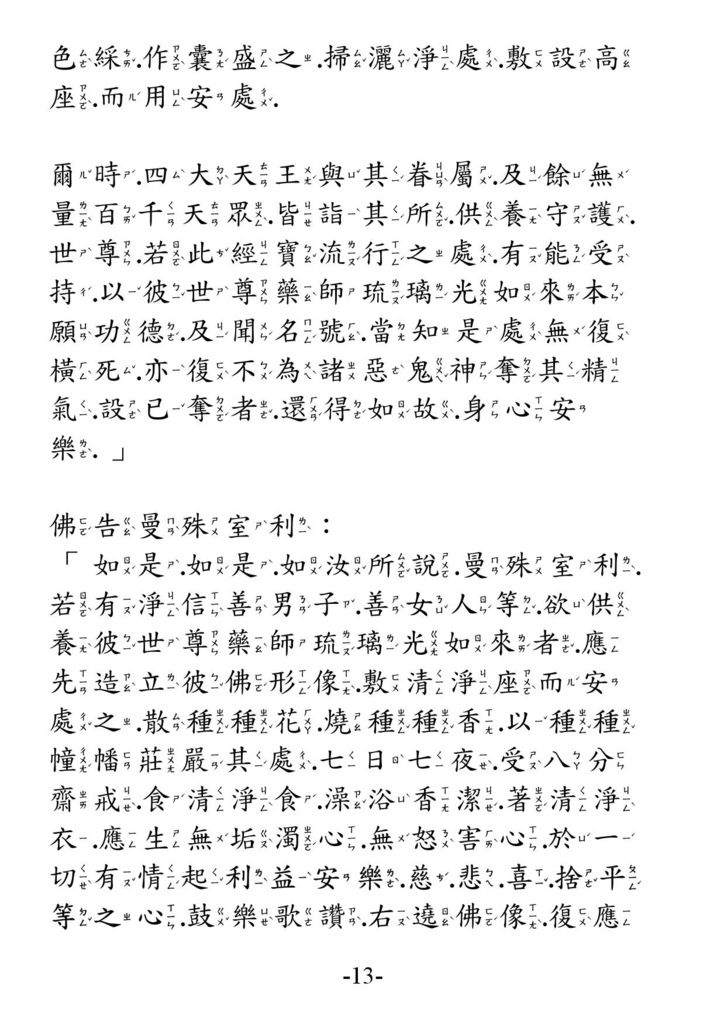 色綵.作囊盛之.掃灑淨處.敷設高
座.而用安處.
爾時.四大天王與其眷屬.及餘無
量百千天眾.皆詣其所.供養守護.
世尊.若此經寶流行之處.有能受
持.以彼世尊藥師琉璃光如來本
願功德.及聞名號.當知是處無復
橫死.亦復不為諸惡鬼神奪其精
氣.設已奪者.還得如故.身心安
樂.」
佛告曼殊室利：
「如是.如是.如汝所說.曼殊室利.
若有淨信善男子.善女人等.欲供
養彼世尊藥師琉璃光如來者.應
先造立彼佛形像.敷清淨座而安
處之.散種種花.燒種種香.以種種
幢幡莊嚴其處.七日七夜.受八分
齋戒.食清淨食.澡浴香潔.著清淨
衣.應生無垢濁心.無怒害心.於一
切有情起利益安樂.慈.悲.喜.捨平
等之心.鼓樂歌讚.右遶佛像.復應
-13-